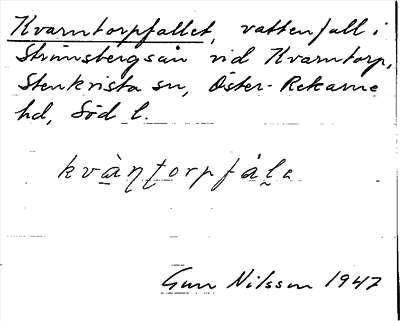 Kvarntorpfallet, vattenfall i
Strömsbergsån vid Kvarntorp,
Stenkvista sn, Öster-Rekarne
hd, Söd l.
kvà̠ɳʈorpfál̠a
Gun Nilsson 1947